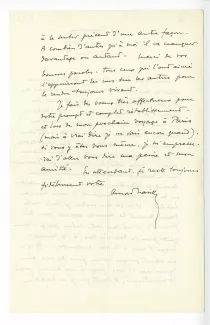 à le sentir présent d'une autre façon.
A combien d'autres qu'à moi il va manquer
davantage ou autant. merci de vos
bonnes paroles. tous ceux qui l'ont aimé
s'appuieront les uns sur les autres pour
le rendre toujours vivant.
Je fais des vœux très affectueux pour
votre prompt et complet rétablissement
et lors de mon prochain voyage à Paris
(mais à vrai dire je ne sais encore quand),
si vous y êtes vous-même, je m'empresse-
rai d'aller vous dire ma peine et mon
amitié. En attendant, je reste toujours
fidèlement votre